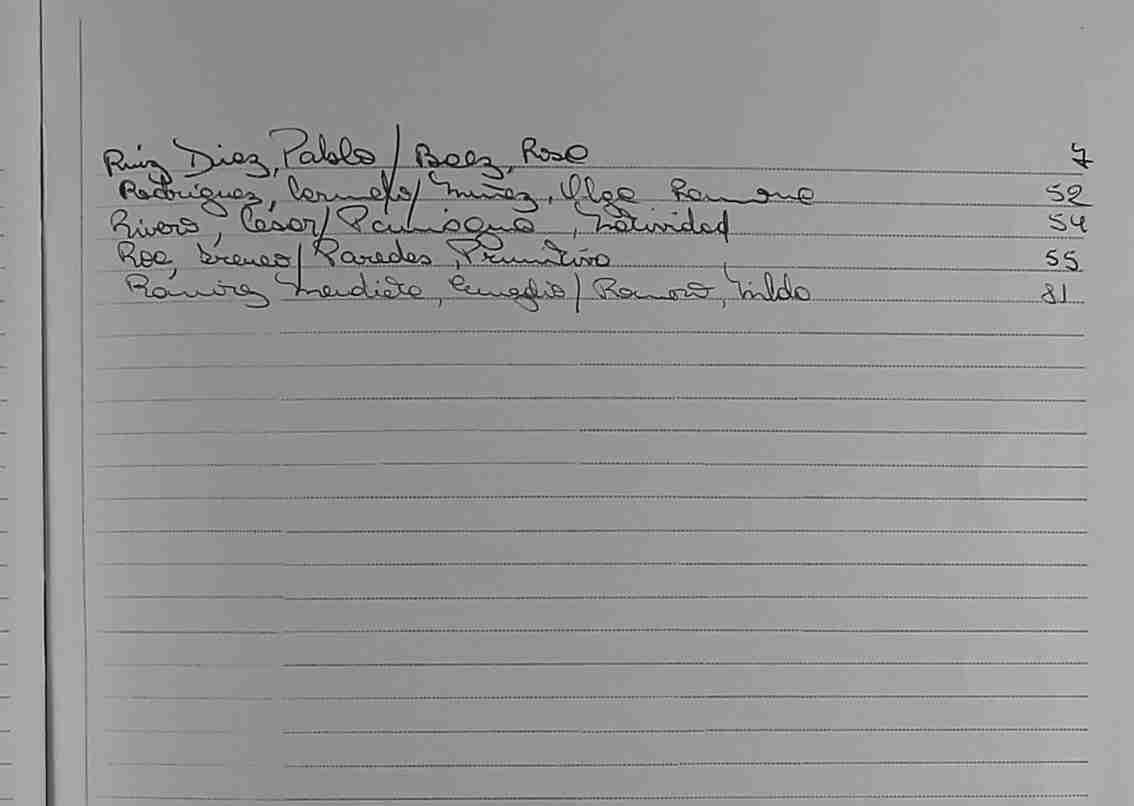 Ruiz Diaz, Pablo / Baez, Rosa 7
Rodríguez, Carmelo / Nuñez, Olga Ramona 52
Rivero, César / Paniagua, Natividad 54
Roa, Ireneo / Paredes, Primitiva 55
Ramírez Mendieta, / Romero, Nilda 81